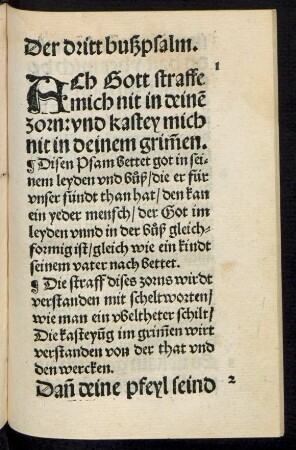 Der dritt bußpsalm.
1
ACh Gott straffe
mich nit in deinē
zorn: vnd kastey mich
nit in deinem grim̃en.
¶ Disen Psam bettet got in sei-
nem leyden vnd büß/ die er für
vnser sündt than hat/ den kan
ein yeder mensch/ der Got im
leyden vnnd in der büß gleich-
formig ist/ gleich wie ein kindt
seinem vater nach bettet.
¶ Die straff dises zorns wirdt
verstanden mit scheltworten/
wie man ein vbeltheter schilt/
Die kasteyūg im grim̃en wirt
verstanden von der that vnd
den wercken.
Dañ deine pfeyl seind 2